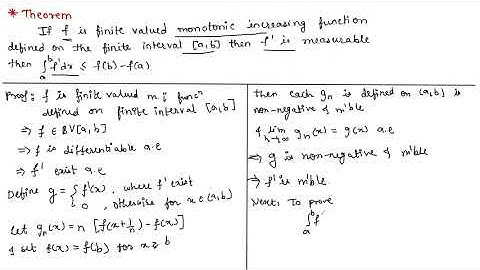 * Theorem
If f is finite valued monotonic increasing function
defined on the finite interval [a,b] then f' is measurable
then ∫ₐᵇ f'dx ≤ f(b) - f(a)
Proof: f is finite valued m.↑ funcⁿ
defined on finite interval [a,b]
⇒ f ∈ BV[a,b]
⇒ f is differentiable a.e
⇒ f' exist a.e
Define g = { f'(x), where f' exist
0, otherwise for x ∈ (a,b)
Let gₙ(x) = n [f(x+1/n) - f(x)]
& set f(x) = f(b) for x ≥ b
then each gₙ is defined on (a,b) is
non-negative & m'ble
& lim n→∞ gₙ(x) = g(x) a.e
⇒ g is non-negative & m'ble
⇒ f' is m'ble.
Next: To prove
∫ₐᵇ f'